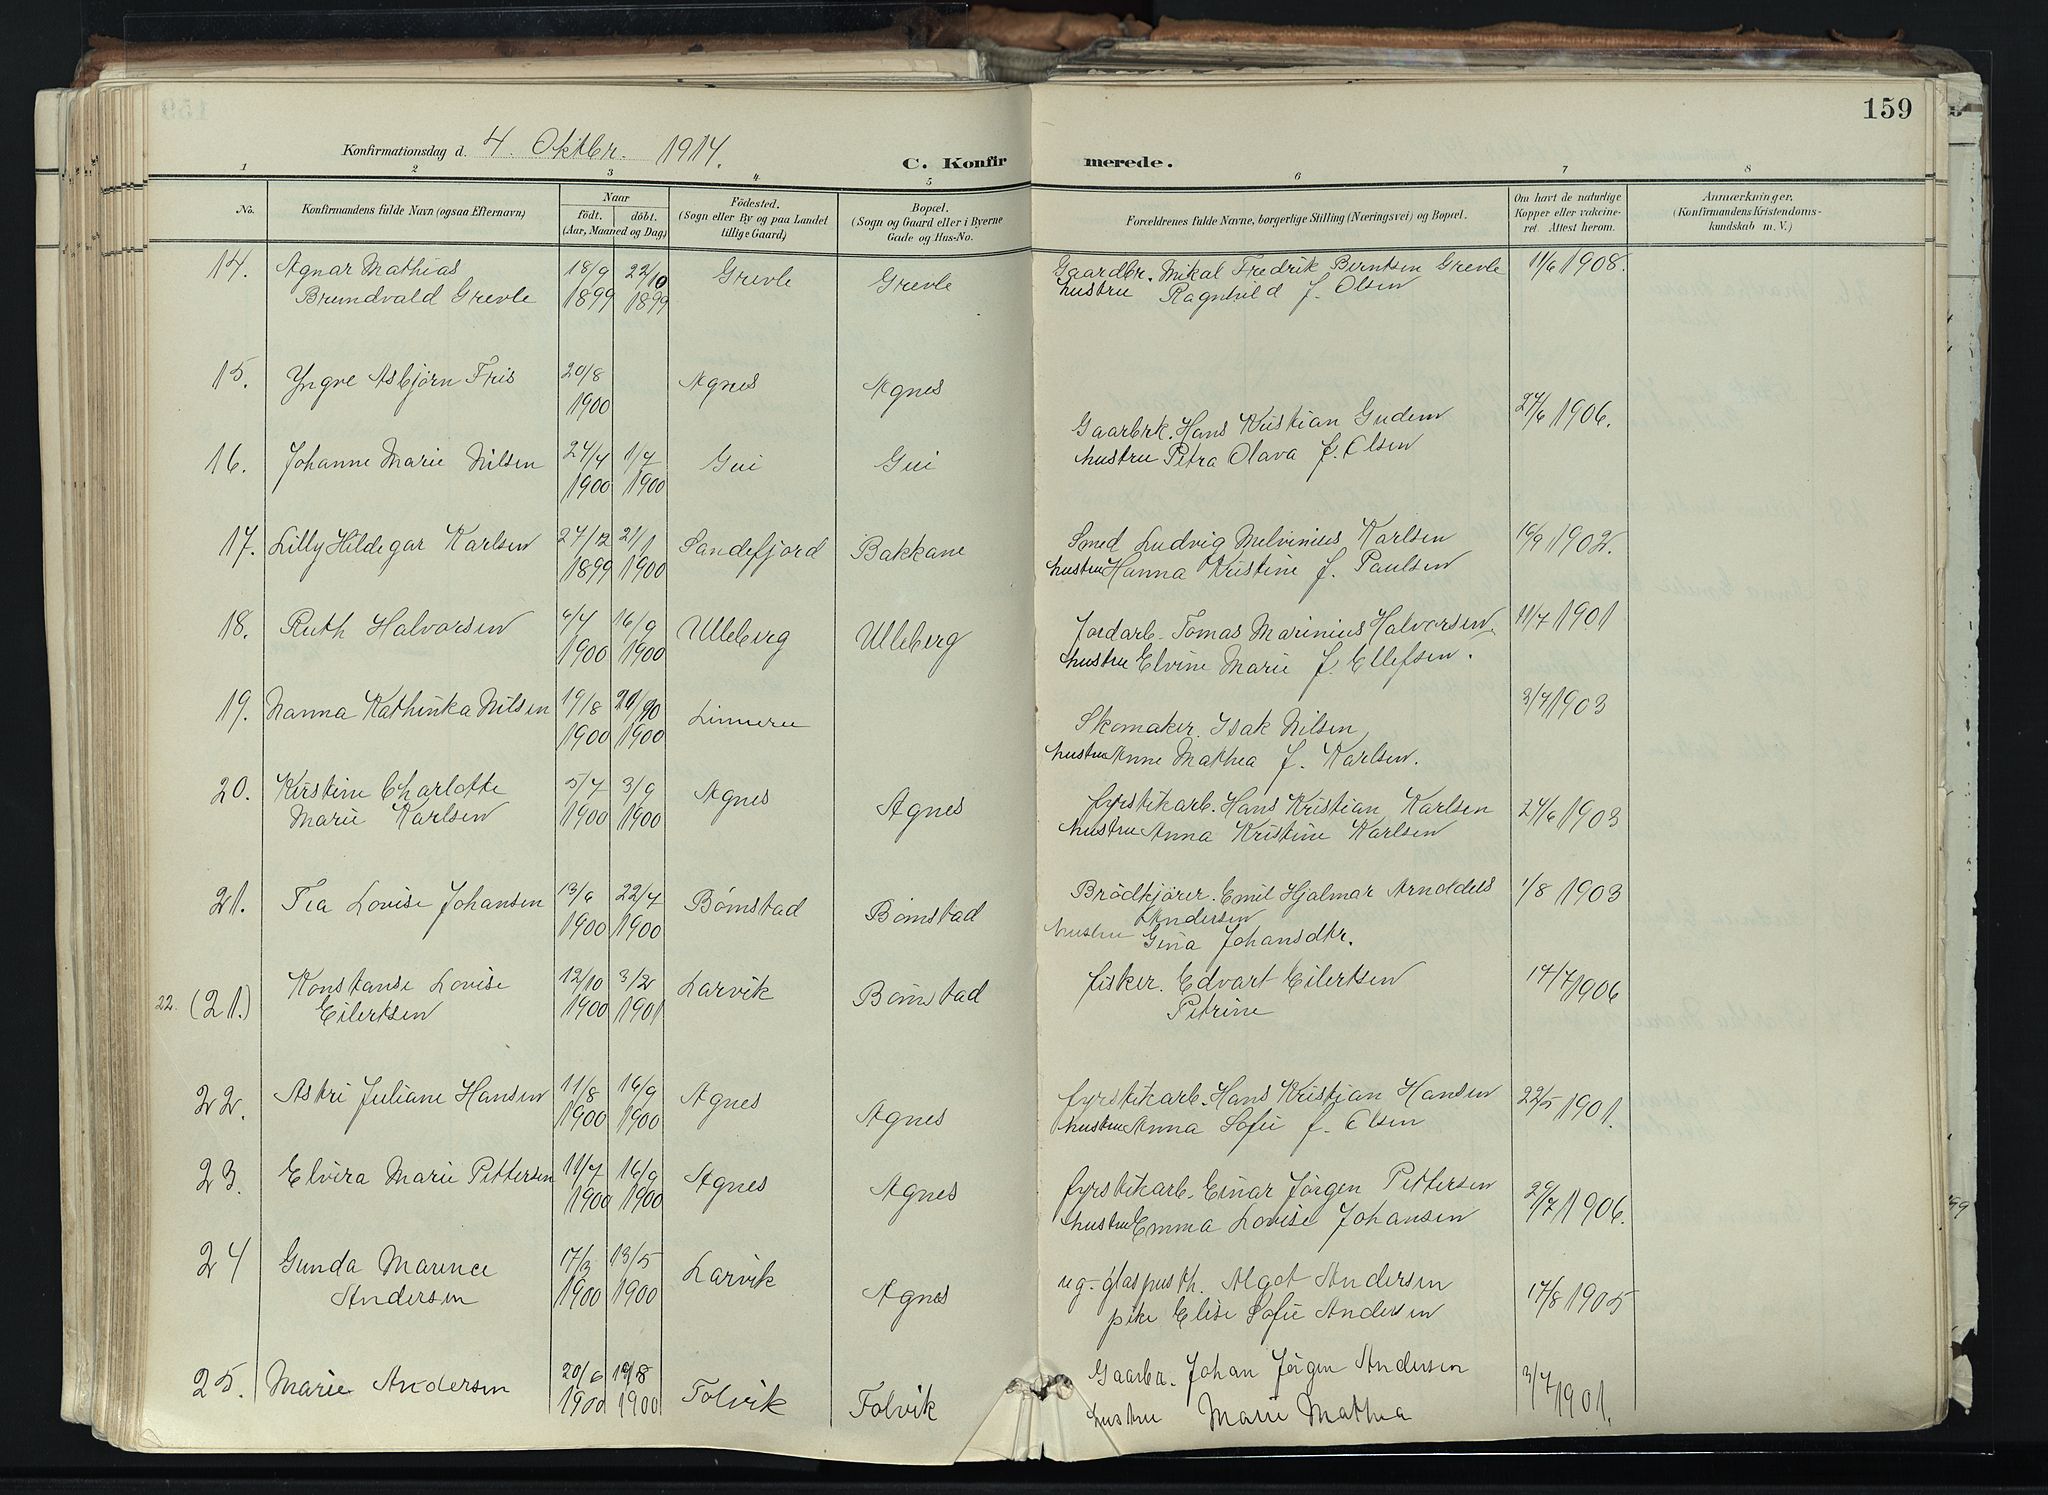 159
Konfirmationsdag d. 4. Oktbr. 1914.
C. Konfirmerede.
1 2 3 4 5 6 7 8
No.
Konfirmandens fulde Navn (ogsaa Efternavn)
Naar
født. døbt.
(Aar, Maaned og Dag)
Fødested.
(Sogn eller By og paa Landet
tillige Gaard)
Bopæl.
(Sogn og Gaard eller i Byerne
Gade og Hus-No.
Forældrenes fulde Navne, borgerlige Stilling (Næringsvei) og Bopæl.
Om havt de naturlige
Kopper eller vakcine-
ret. Attest herom.
Anmærkninger.
(Konfirmandens Kristendoms-
kundskab m. V.)
14. Agnar Mathias 18/9 22/10 Grevle Grevle Gaardbr. Mikal Fredrik Berntsen Grevle 11/6 1908.
Brundvald Grevle 1899 1899 hustru Ragnhild f. Olsen
15. Yngve Asbjørn Fris 20/8 Agnes Agnes
1900
Gaarbrk. Hans Kristian Gudem 27/6 1906.
16. Johanne Marie Nilsen 24/4 1/7 Gui Gui hustru Petra Olava f. Olsen
1900 1900
17. Lilly Hildegar Karlsen 27/12 21/1 Sandefjord Bakkane Smed Ludvig Melvinius Karlsen 16/9 1902.
1899 1900 hustru Hanna Kristine f. Paulsen
18. Ruth Halvorsen 6/7 16/9 Ulleberg Ulleberg Jordarb. Tomas Marinius Halvorsen. 11/7 1901
1900 1900 hustru Elvine Marie f. Ellefsen.
19. Nanna Kathinka Nilsen 19/8 /10 Linnern Skomaker. Isak Nilsen 3/7 1903
1900 1900 hustru Anne Mathea f. Karlsen.
20. Kirstine Charlotte 5/7 3/9 Agnes Agnes fyrstikarb. Hans Kristian Karlsen 27/6 1903
Marie Karlsen 1900 1900 hustru Anna Kristine Karlsen
21. Tea Lovise Johansen 13/6 22/7 Bømstad Bømstad Brödkjörer. Emil Hjalmar Arnoldels 1/8 1903
1900 1900 Andersen
hustru Gina Johansdtr.
22. (21.) Konstanse Lovise 12/10 3/2 Larvik Bømstad fisker. Edvart Eilertsen 17/7 1906
Eilertsen 1900 1901 Petrine
22. Astri Juliane Hansen 11/8 16/9 Agnes Agnes fyrstikarb. Hans Kristian Hansen 22/5 1901.
1900 1900 hustru Anna Sofie f. Olsen
23. Elvira Marie Pettersen 11/7 16/9 Agnes Agnes fyrstikarb. Einar Jørgen Pettersen 29/7 1906.
1900 1900 hustru Emma Lovise Johansen
24 Gunda Marence 17/3 13/5 Larvik Agnes ug. glaspusth. Algot Andersen 17/8 1905
Andersen 1900 1900 pike Elise Sofie Andersen
25. Marie Andersen 20/6 19/8 Folvik Folvik Gaarbr. Johan Jørgen Andersen 3/7 1901.
1900 1900 hustru Marie Mathea